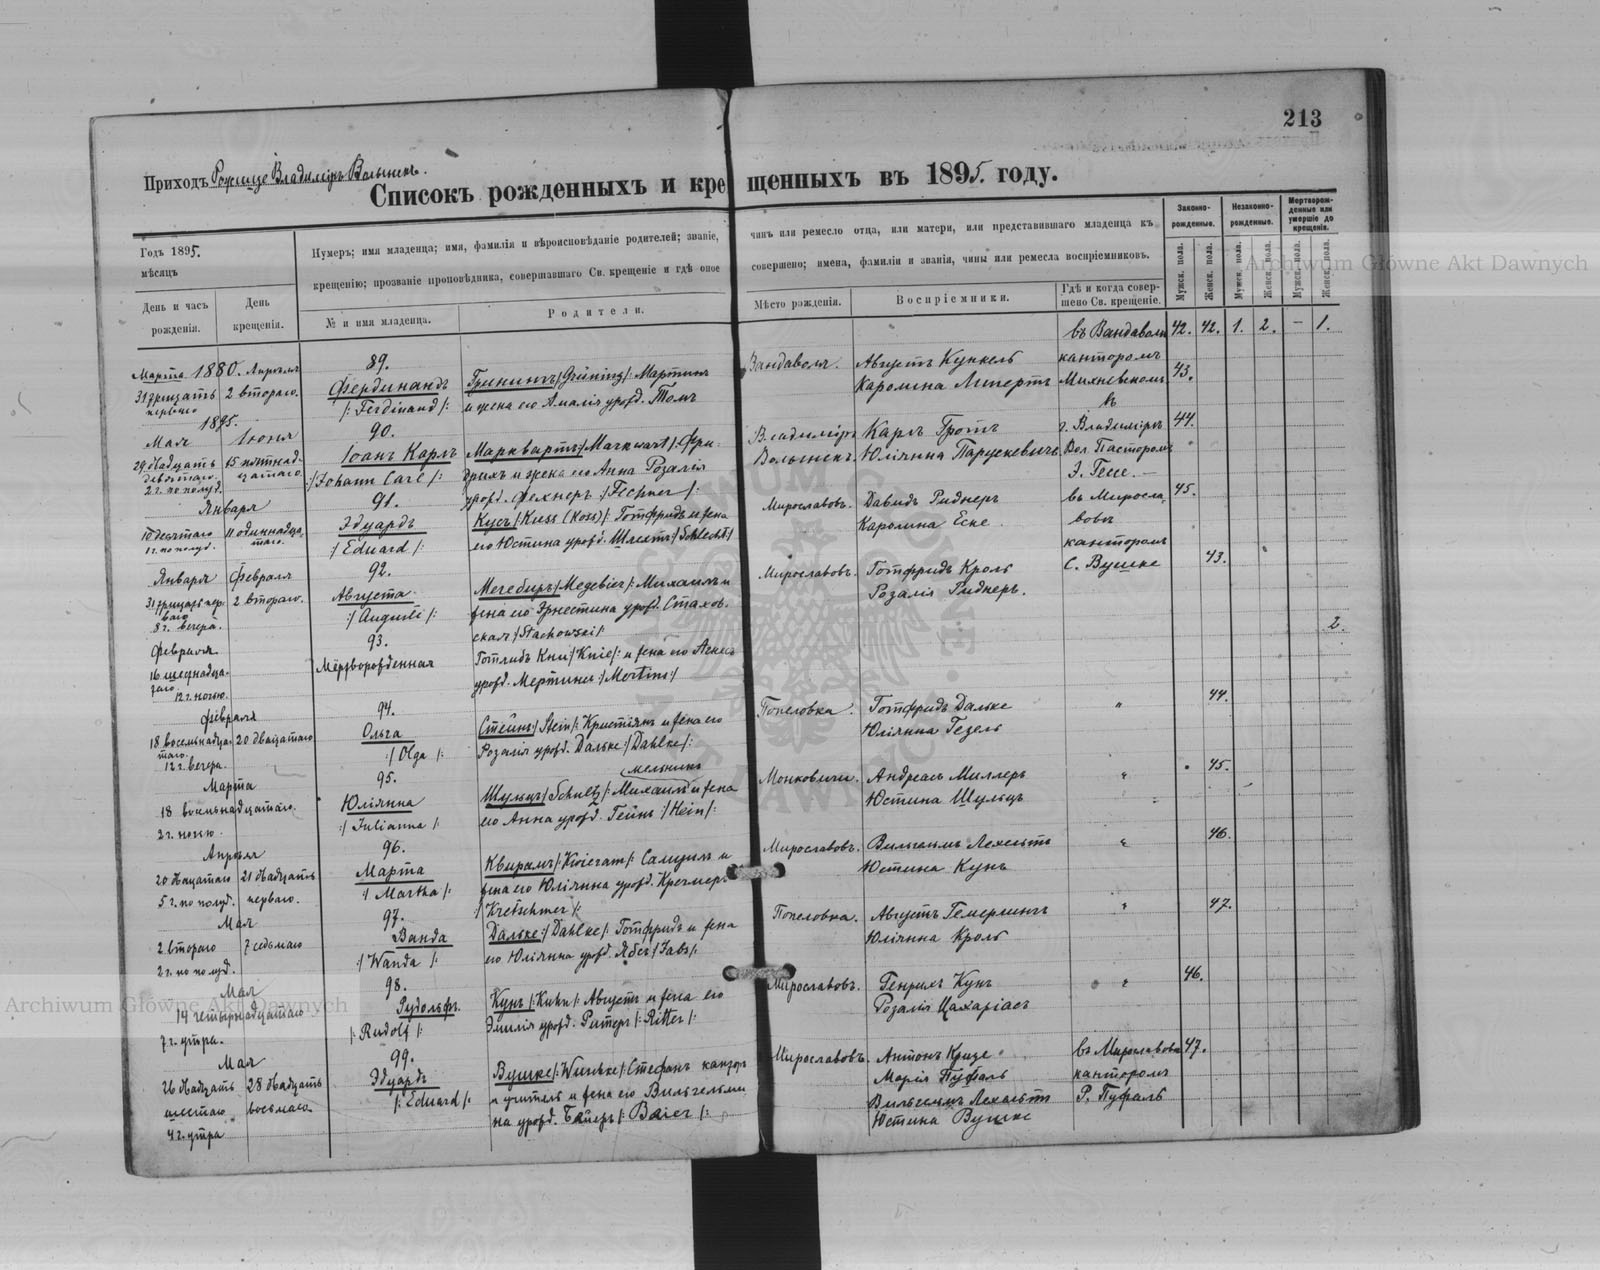 213
Приходъ Рожище Владиміръ Волынск.
Списокъ рожденныхъ и крещенныхъ въ 1895. году.
Годъ 1895.
мѣсяцъ
День и часъ
рожденія.
День
крещенія.
Нумеръ; имя младенца; имя, фамилія и вѣроисповѣданіе родителей; званіе, чинъ или ремесло отца, или матери, или представившаго младенца къ
крещенію; прозваніе проповѣдника, совершавшаго Св. крещеніе и гдѣ оное совершено; имена, фамиліи и званія, чины или ремесла воспріемниковъ.
№ и имя младенца.
Родители.
Мѣсто рожденія.
Воспріемники.
Гдѣ и когда совер-
шено Св. крещеніе.
Законно-
рожденные.
Незаконно-
рожденные.
Мертворож-
денные или
умершіе до
крещенія.
Мужск. пола.
Женск. пола.
Мужск. пола.
Женск. пола.
Мужск. пола.
Женск. пола.
42. 42. 1. 2. — 1.
Марта 1880. Апрѣля
31 тридцать
перваго
2 втораго.
89.
Фердинандъ
/: Ferdinand /:
Грининъ /: Grüning /: Мартинъ
и жена его Амалія урожд. Томъ
Вандаволя.
Августъ Кункель
Каролина Липертъ
въ Вандаволи
канторомъ
Михневскомъ
43.
1895.
Мая
Іюня
29 двадцать
девятаго
2 г. по полуд.
15 пятнад-
цатаго
90.
Іоанъ Карлъ
/: Johann Carl /:
Марквартъ /: Markwart /: Фри-
дрихъ и жена его Анна Розалія
урожд. Фехнеръ /: Fechner /:
Владиміръ
Волынск.
Карлъ Гротъ
Юліянна Парускевичъ
въ
г. Владиміръ
Вол. Пасторомъ
Э. Гессе. —
44.
Января
10 десятаго
1 г. по полуд.
11 одиннадца-
таго.
91.
Эдуардъ
/: Eduard /:
Кусъ /: Kuss (Koss) /: Готфридъ и жена
его Юстина урожд. Шлехтъ /: Schlecht /:
Мирославовъ.
Давидъ Риднеръ
Каролина Еске
въ Миросла-
вовъ
канторомъ
С. Вушке
45.
Января
Февраля
31 тридцать пер-
ваго
8 г. вечера.
2 втораго.
92.
Августа
/: Auguste /:
Мегебиръ /: Megebier /: Михаилъ и
жена его Эрнестина урожд. Стахов-
ская /: Stachowski /:
Мирославовъ.
Готфридъ Кроль
Розалія Риднеръ.
43.
Февраля
16 шестнадца-
таго
12 г. ночью.
93.
Мёртворожденная
Готлибъ Кни /: Knie /: и жена его Агнеса
урожд. Мертинъ /: Mertins /:
2.
Февраля
18 восемьнадца-
таго
12 г. вечера.
20 двацатаго
94.
Ольга
/: Olga /:
Стейнъ /: Stein /: Кристіянъ и жена его
Розалія урожд. Дальке /: Dahlke /:
Попеловка.
Готфридъ Дальке
Юліянна Гезель
"
44.
Марта
18 восьмнадцатаго.
2 г. ночью.
95.
Юліянна
/: Julianna /:
мельникъ
Шульцъ /: Schultz /: Михаилъ и жена
его Анна урожд. Гейнъ /: Hein /:
Монковичи.
Андреасъ Миллеръ
Юстина Шульцъ
"
45.
Апрѣля
20 двацатаго
5 г. по полуд.
21 двадцать
перваго.
96.
Марта
/: Martha /:
Квирамъ /: Kwiram /: Самуилъ и
жена его Юліянна урожд. Кречмеръ
/: Kretschmer /:
Мирославовъ.
Вильгельмъ Лехельтъ
Юстина Кунъ
"
46.
Мая
2 втораго
2 г. по полуд.
7 седьмаго
97.
Ванда
/: Wanda /:
Дальке /: Dahlke /: Готфридъ и жена
его Юліянна урожд. Ябсъ /: Jabs /:
Попеловка.
Августъ Гемерлингъ
Юліянна Кроль
"
47.
Мая
14 четырнадцатаго
7 г. утра.
98.
Рудольфъ.
/: Rudolf /:
Кунъ /: Kuhn /: Августъ и жена его
Эмилія урожд. Ритеръ /: Ritter /:
Мирославовъ.
Генрихъ Кунъ
Розалія Цахаріасъ
"
46.
Мая
26 двадцать
шестаго
4 г. утра
28 двадцать
восьмаго
99.
Эдуардъ
/: Eduard /:
Вушке /: Wuschke /: Стефанъ канторъ
и учитель и жена его Вильгельми-
на урожд. Байеръ /: Baier /:
Мирославовъ.
Антонъ Кризе
Марія Пуфаль
Вильгельмъ Лехельтъ
Юстина Вушке
въ Мирославовъ
канторомъ
Р. Пуфаль
47.
Archiwum Główne Akt Dawnych
Archiwum Główne Akt Dawnych